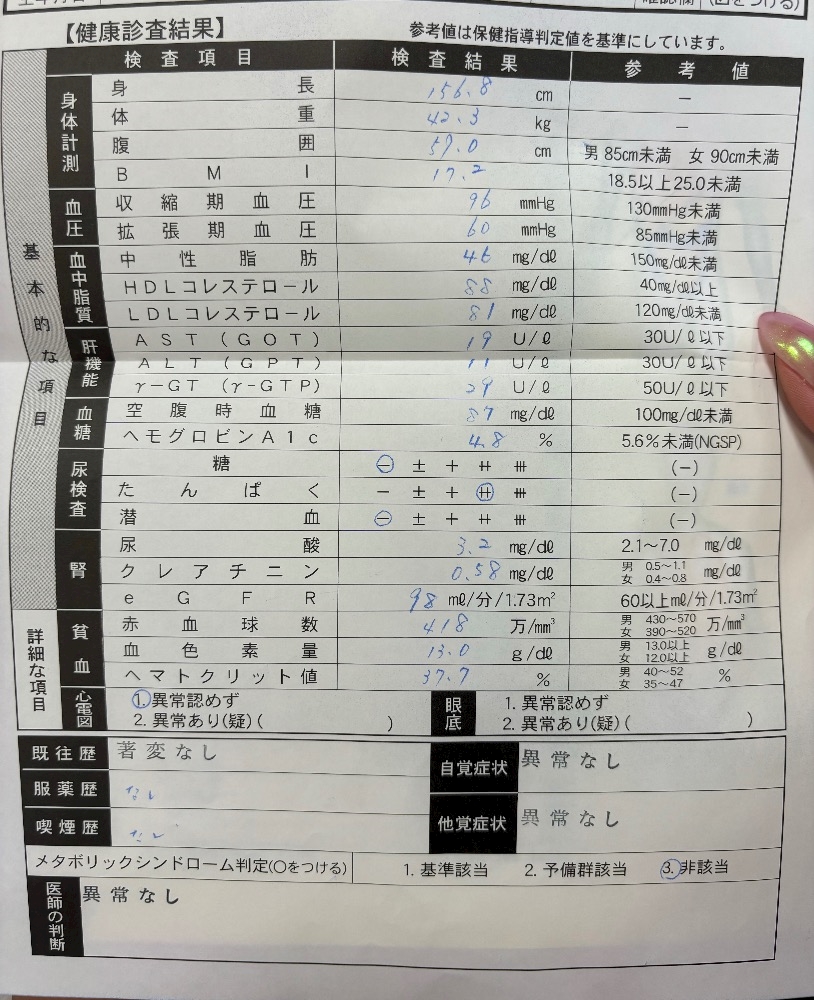 【健康診査結果】
参考値は保健指導判定値を基準にしています。
検査項目 検査結果 参考値
基本的な項目
身体計測
身長 156.8 cm －
体重 42.3 kg －
腹囲 57.0 cm 男 85cm未満 女 90cm未満
BMI 17.2 18.5以上25.0未満
血圧
収縮期血圧 96 mmHg 130mmHg未満
拡張期血圧 60 mmHg 85mmHg未満
血中脂質
中性脂肪 46 mg/dℓ 150mg/dℓ未満
HDLコレステロール 88 mg/dℓ 40mg/dℓ以上
LDLコレステロール 81 mg/dℓ 120mg/dℓ未満
肝機能
AST(GOT) 19 U/ℓ 30U/ℓ以下
ALT(GPT) 11 U/ℓ 30U/ℓ以下
γ-GT (γ-GTP) 29 U/ℓ 50U/ℓ以下
血糖
空腹時血糖 87 mg/dℓ 100mg/dℓ未満
ヘモグロビンA1c 4.8 % 5.6%未満(NGSP)
尿検査
糖 － ± ＋ ⧺ ⧻ (－)
たんぱく － ± ＋ ⧺ ⧻ (－)
潜血 － ± ＋ ⧺ ⧻ (－)
腎
尿酸 3.2 mg/dℓ 2.1〜7.0 mg/dℓ
クレアチニン 0.58 mg/dℓ 男 0.5〜1.1 女 0.4〜0.8 mg/dℓ
eGFR 98 mℓ/分/1.73m² 60以上mℓ/分/1.73m²
詳細な項目
貧血
赤血球数 418 万/mm³ 男 430〜570 女 390〜520 万/mm³
血色素量 13.0 g/dℓ 男 13.0以上 女 12.0以上 g/dℓ
ヘマトクリット値 37.7 % 男 40〜52 女 35〜47 %
心電図 1. 異常認めず 眼底 1. 異常認めず
2. 異常あり(疑)( ) 2. 異常あり(疑)( )
既往歴 著変なし 自覚症状 異常なし
服薬歴 なし
喫煙歴 なし 他覚症状 異常なし
メタボリックシンドローム判定(〇をつける) 1. 基準該当 2. 予備群該当 3. 非該当
医師の判断 異常なし